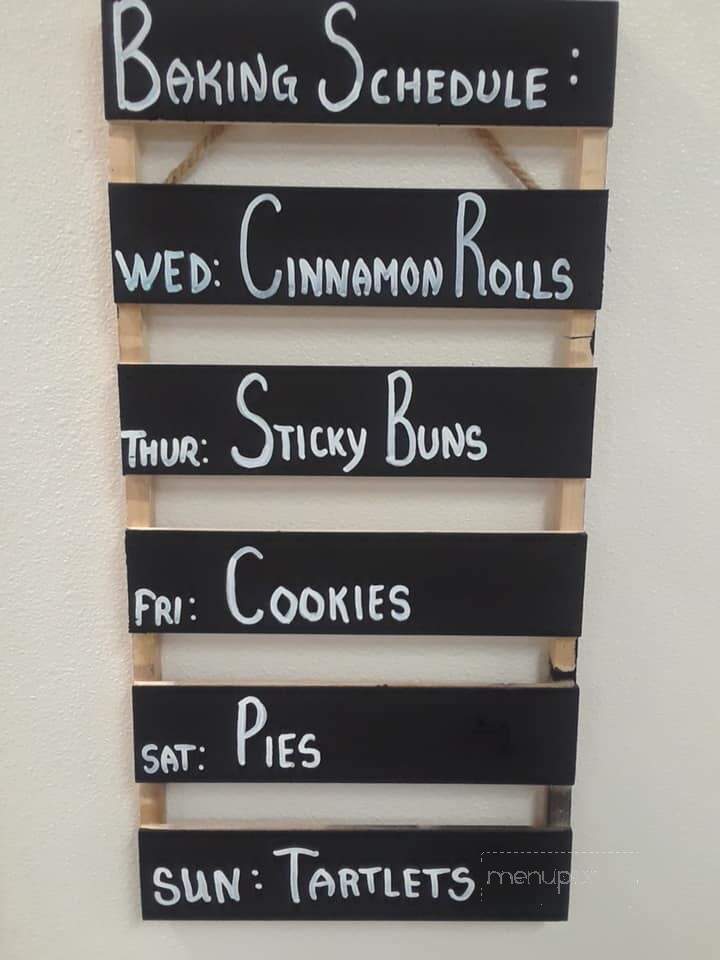 BAKING SCHEDULE:
WED: CINNAMON ROLLS
THUR: STICKY BUNS
FRI: COOKIES
SAT: PIES
SUN: TARTLETS